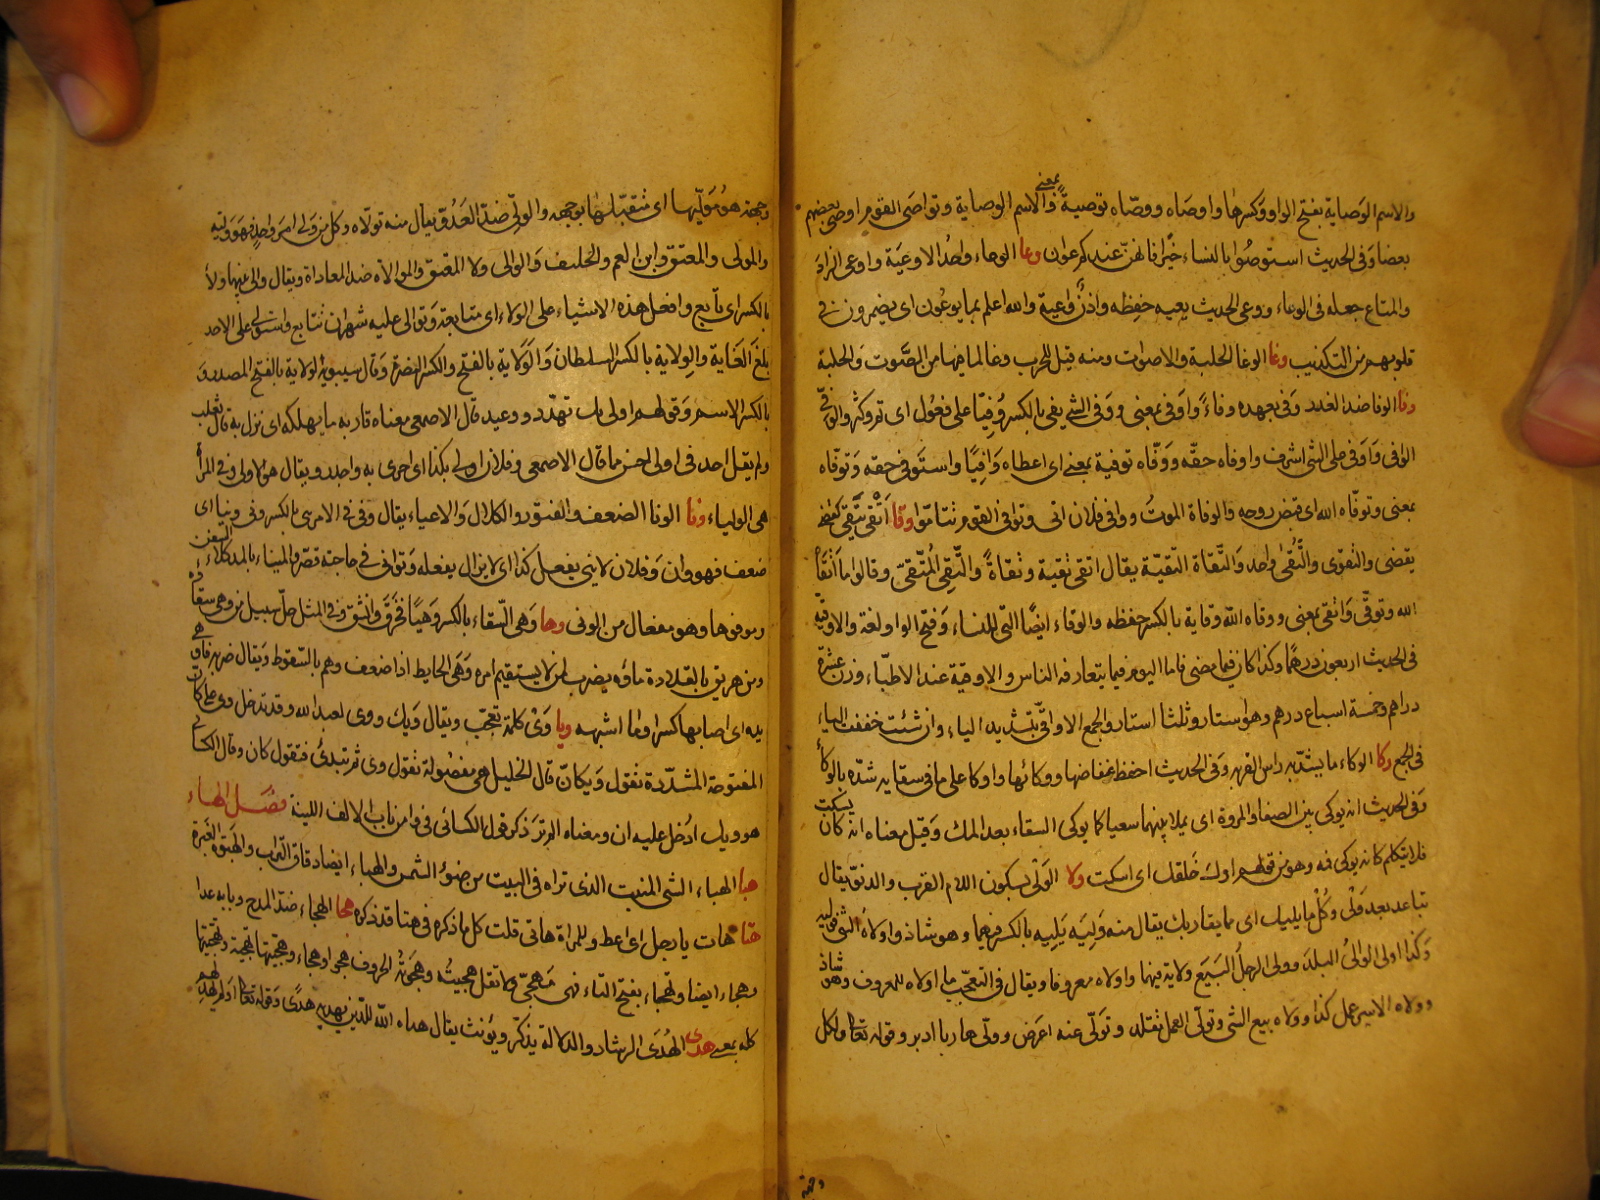 والاسم الوَصاية بفتح الواو وكسرها واوصاه ووصّاه توصيةً بمعنى والاسم الوصاية وتواصَى القوم اوصى بعضهم
بعضا وفى الحديث استوصُوا بالنساء خيرًا فانهنّ عندكم عوان وعا الوعاء واحدُ الاوعيَة واوعى الزادَ
والمتاع جعله فى الوعاء ووعى الحديث يعيه حفِظه واذنٌ واعية والله اعلم بما يوعُون اى يضمرون فى
قلوبهم من التكذيب وغا الوغا الجلبة والاصوات ومنه قيل للحرب وغا لما فيها من الصّوت والجلبة
وفا الوفا ضد الغدر وفى بعهده وفاءً واوفى بمعنى ووفى الشئ يفى بالكسر وُفيًّا على فعُول اى تم وكثر والوفىّ
الوافى واوفى على الشئ اشرف واوفاه حقّه ووفّاه توفية بمعنى اى اعطاه وَافِيًا واستوفى حقه وتوفّاه
بمعنى وتوفّاه الله اى قبض روحه والوفاة الموتُ ووافى فلان اتى وتوافى القوم تتامّوا وقا اتّقى يتّقى كقضى
يقضى والتّقوى والتُّقى واحد والتُّقاة التّقيّة يقال اتقى تقية وتقاةً والتَّقى المُتّقى وقالوا ما اتقاه
لله وتوقّى واتقى بمعنى ووقاه الله وقاية بالكسر حفظه والوقاء ايضًا التى للنساء وفتح الواو لغة والاوقيّة
فى الحديث اربعون درهمًا وكذا كان فيما مضى فاما اليوم فيما يتعارفه الناس والاوقيّة عند الاطبّاء وزن عشرة
دراهم وخمسة اسباع درهم وهو استار وثلثا استار والجمع الاواقىّ بتشديد الياء وان شئت خففت الياء
فى الجمع وكا الوكاء ما يشدّ به راس القربة وفى الحديث احفظ عفاصها ووكاءها واوكا على ما فى سقايه شدّه بالوكاء
وفى الحديث انه يوكى بين الصفا والمروة اى يملا بينهما سعيا كما يوكى السقاء بعد الملء وقيل معناه انه كان يسكت
فلا يتكلم كانه يوكى فمه وهو من قولهم اوكِ حَلقك اى اسكت ولا الوَلْى بسكون اللام القرب والدنوّ يقال
تباعد بعد وَلْى وكُلْ مما يليك اى مما يقاربك يقال منه وَلِيَه يَلِيه بالكسر فيهما وهو شاذ واولاه الشئ فوليه
وكذا اولى الوالى البلدَ وولى الرجلُ البَيعَ ولاية فيهما واولاه معروفا ويقال فى التعجّب ما اولاه للمعروف وهو شاذ
وولاه الامير عمل كذا وولاه بيع الشئ وتولّى العمل تقلده وتولّى عنه اعرض وولّى هاربا ادبر وقوله تعالى ولكل
وجهة
وجهة هو مُوَلّيها اى مستقبلها بوجهه والولىّ ضدّ العَدُوّ يقال منه تولّاه وكل من ولى امر واحد فهو وَليّه
والمولى والمعتِق وابن العم والحليف والوالى ولا المعتق والموالاة ضد المعاداة ويقال والى بينهما ولآء
بالكسر اى تابع وافعل هذه الاشياء على الولاء اى متتابعة وتوالى عليه شهران تتابع واستولى على الامد
بلغ الغاية والوِلاية بالكسر السلطان والوَلاية بالفتح والكسر النصرة وقال سيبويه الولاية بالفتح المصدر و
بالكسر الاسم وقولهم اولى لك تهدّد ووعيد قال الاصمعى معناه قاربه ما يهلكه اى نزل به قال ثعلب
ولم يقل احد فى اولى احسن مما قال الاصمعى وفلان اولى بكذا اى احرى به واجدر ويقال هو الاولى وفى المرأة
هى الولياء ونا الونا الضعف والفتور والكلال والاعياء يقال ونى فى الامر ينى بالكسر ونى ونيا اى
ضعف فهو وان وفلان لا ينى يفعل كذا اى لا يزال يفعله وتوانى فى حاجته قصّر والميناء بالمد كلّاء السفن
ومرفوها وهو مفعال من الونى وها وَهَى السّقاء بالكسر وهيًا تخرّق وانشقّ وفى المثل خلّ سبيل من وهى سقاؤه
ومن هريق بالفلاة ماؤه يضرب لمن لا يستقيم امره وَهَى الحايط اذا ضعف وهم بالسّقوط ويقال ضربه فاوهى
يده اى اصابها كسر او ما اشبهه ويا وَىْ كلمة تعجّب ويقال وَيك ووى لعبد الله وقد تدخل وى على كانّ
المفتوحة المشدّدة تقول وَيكانّ قال الخليل هى مفصُولة تقول وى ثم تبتدئ فتقول كان وقال الكسائى
هو ويك ادُخل عليه ان ومعناه الم تر ذكر قول الكسائى فى وا من باب الالف اللينة فصل الهاء
هبا الهباء الشئ المنبث الذى تراه فى البيت من ضوء الشمس والهباء ايضا دقاق التراب والهبوة الغبرة
هتا هات يا رجل اى اعط وللمراة هاتى قلت كل ما ذكره فى هتا قد ذكره هجا الهجاء ضدّ المدح وبابه عدا
وهجاء ايضا وتهجاء بفتح التاء فهى مَهجىّ ولا تقل هجيتُه وهجَوتُ الحروف هجوا وهجاء وهجّيتها تهجية وتهجّيتها
كله بمعنى هدى الهُدَى الرشاد والدلالة يذكّر ويؤنث يقال هداه الله للدّين يهديه هدًى وقوله تعالى اولم يهد لهم